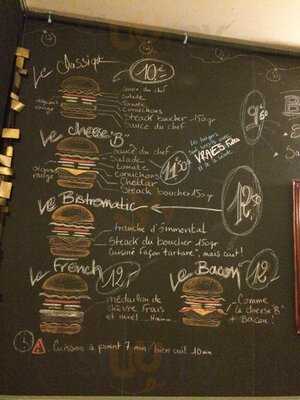 Le Classiqe
10€
sauce du chef
salade
tomate
cornichons
oignon
rouge
Steack boucher 150gr
Sauce du chef
Le Cheese "B"
sauce du chef
Salade
tomate
oignon
rouge
cornichons
Cheddar
Steack boucher 150gr
11€50
les burgers
VRAIES frites
& salade
9€
50
Le Bistromatic
12€
tranche d'emmental
Steack du boucher 150gr
Cuisiné façon "tartare", mais cuit!
Le French
12,-
médaillon de
chèvre frais
et miel
Le Bacon
12,-
Comme
le cheese "B"
+ Bacon!
Cuisson à point 7 min / bien cuit 10min